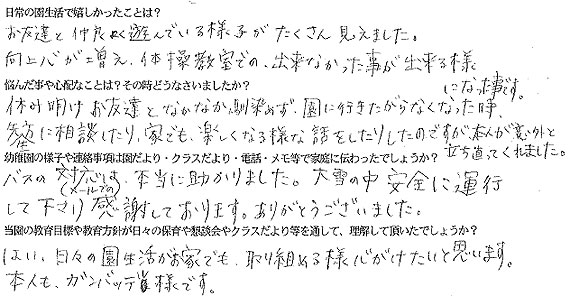 日常の園生活で嬉しかったことは？
お友達と仲良く遊んでいる様子がたくさん見えました。
向上心が増え、体操教室での、出来なかった事が出来る様
になった事です。
悩んだ事や心配なことは？その時どうなさいましたか？
休み明けお友達となかなか馴染めず、園に行きたがらなくなった時、
先生に相談したり、家でも、楽しくなる様な話をしたりしたのですが本人が意外と
立ち直ってくれました。
幼稚園の様子や連絡事項は園だより・クラスだより・電話・メモ等で家庭に伝わったでしょうか？
バスの対応は、本当に助かりました。大雪の中安全に運行
(メールでの)
して下さり感謝しております。ありがとうございました。
当園の教育目標や教育方針が日々の保育や懇談会やクラスだより等を通して、理解して頂いたでしょうか？
はい、日々の園生活がお家でも、取り組める様心がけたいと思います。
本人も、ガンバッテ様です。